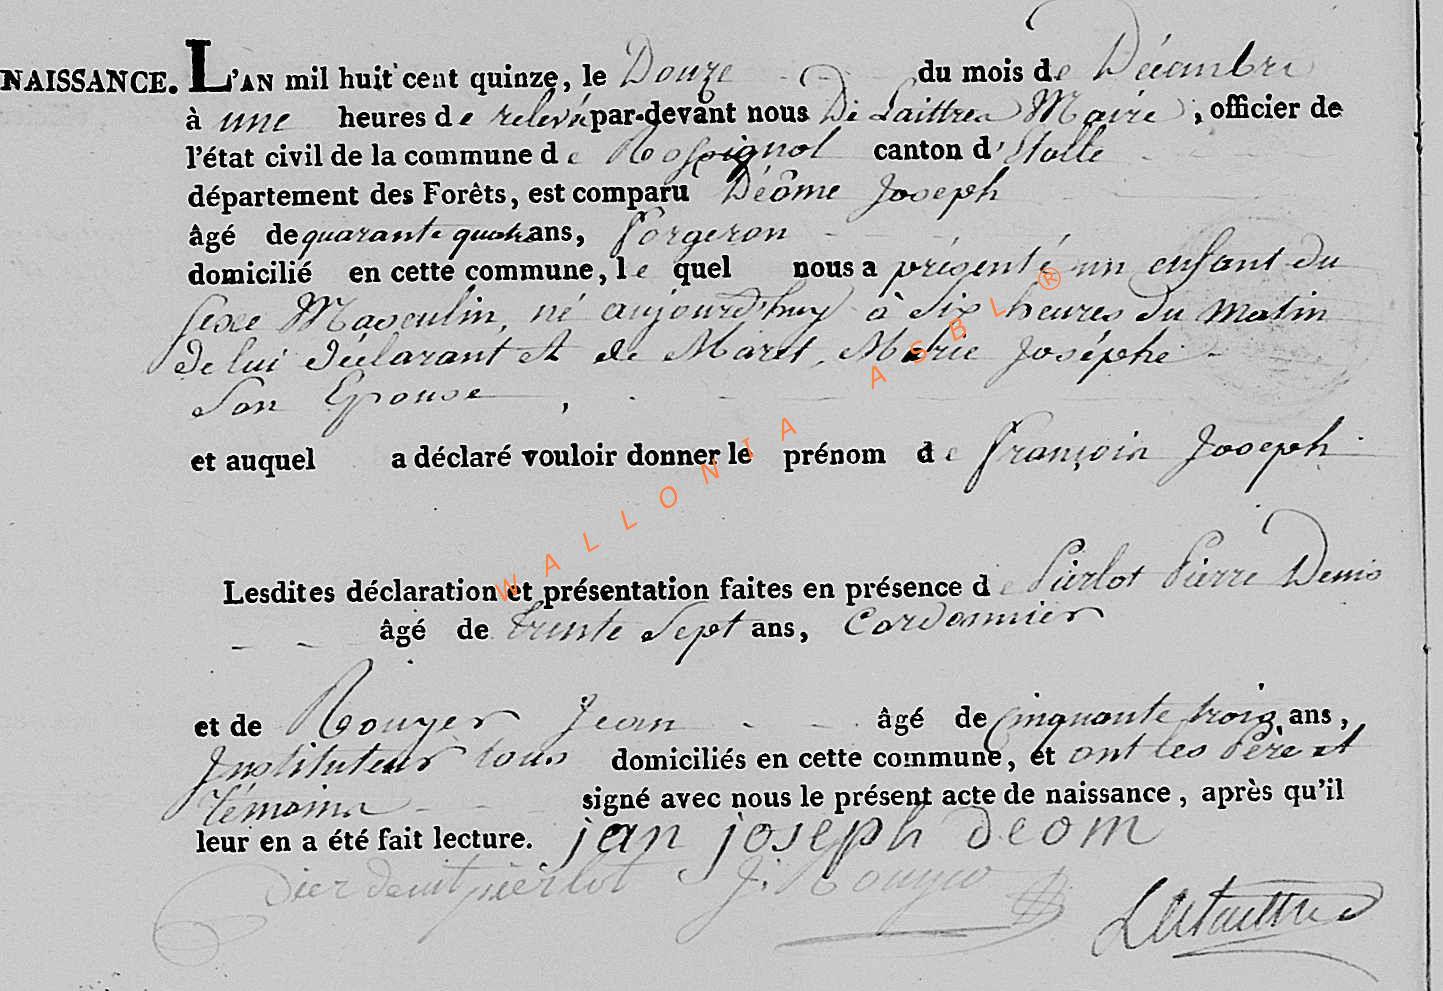 NAISSANCE. L'AN mil huit cent quinze, le Douze du mois de Décembre
à une heures de relevé par-devant nous De Laittres Maire, officier de
l'état civil de la commune de Rossignol canton d'Etalle
département des Forêts, est comparu Déôme Joseph
âgé de quarante quatre ans, forgeron
domicilié en cette commune, le quel nous a présenté un enfant du
sexe Masculin, né aujourd'huy à Six heures du matin
de lui déclarant et de Maret, Marie Joséphe
Son Epouse,
et auquel a déclaré vouloir donner le prénom de françois Joseph
WALLONIA ASBL ®
Lesdites déclaration et présentation faites en présence de Pierlot Pierre Denis
âgé de trente Sept ans, Cordonnier
et de Rouyer Jean âgé de cinquante trois ans,
Instituteur tous domiciliés en cette commune, et ont les Père et
témoins signé avec nous le présent acte de naissance, après qu'il
leur en a été fait lecture. jan joseph deom
pierlot J. Rouyer